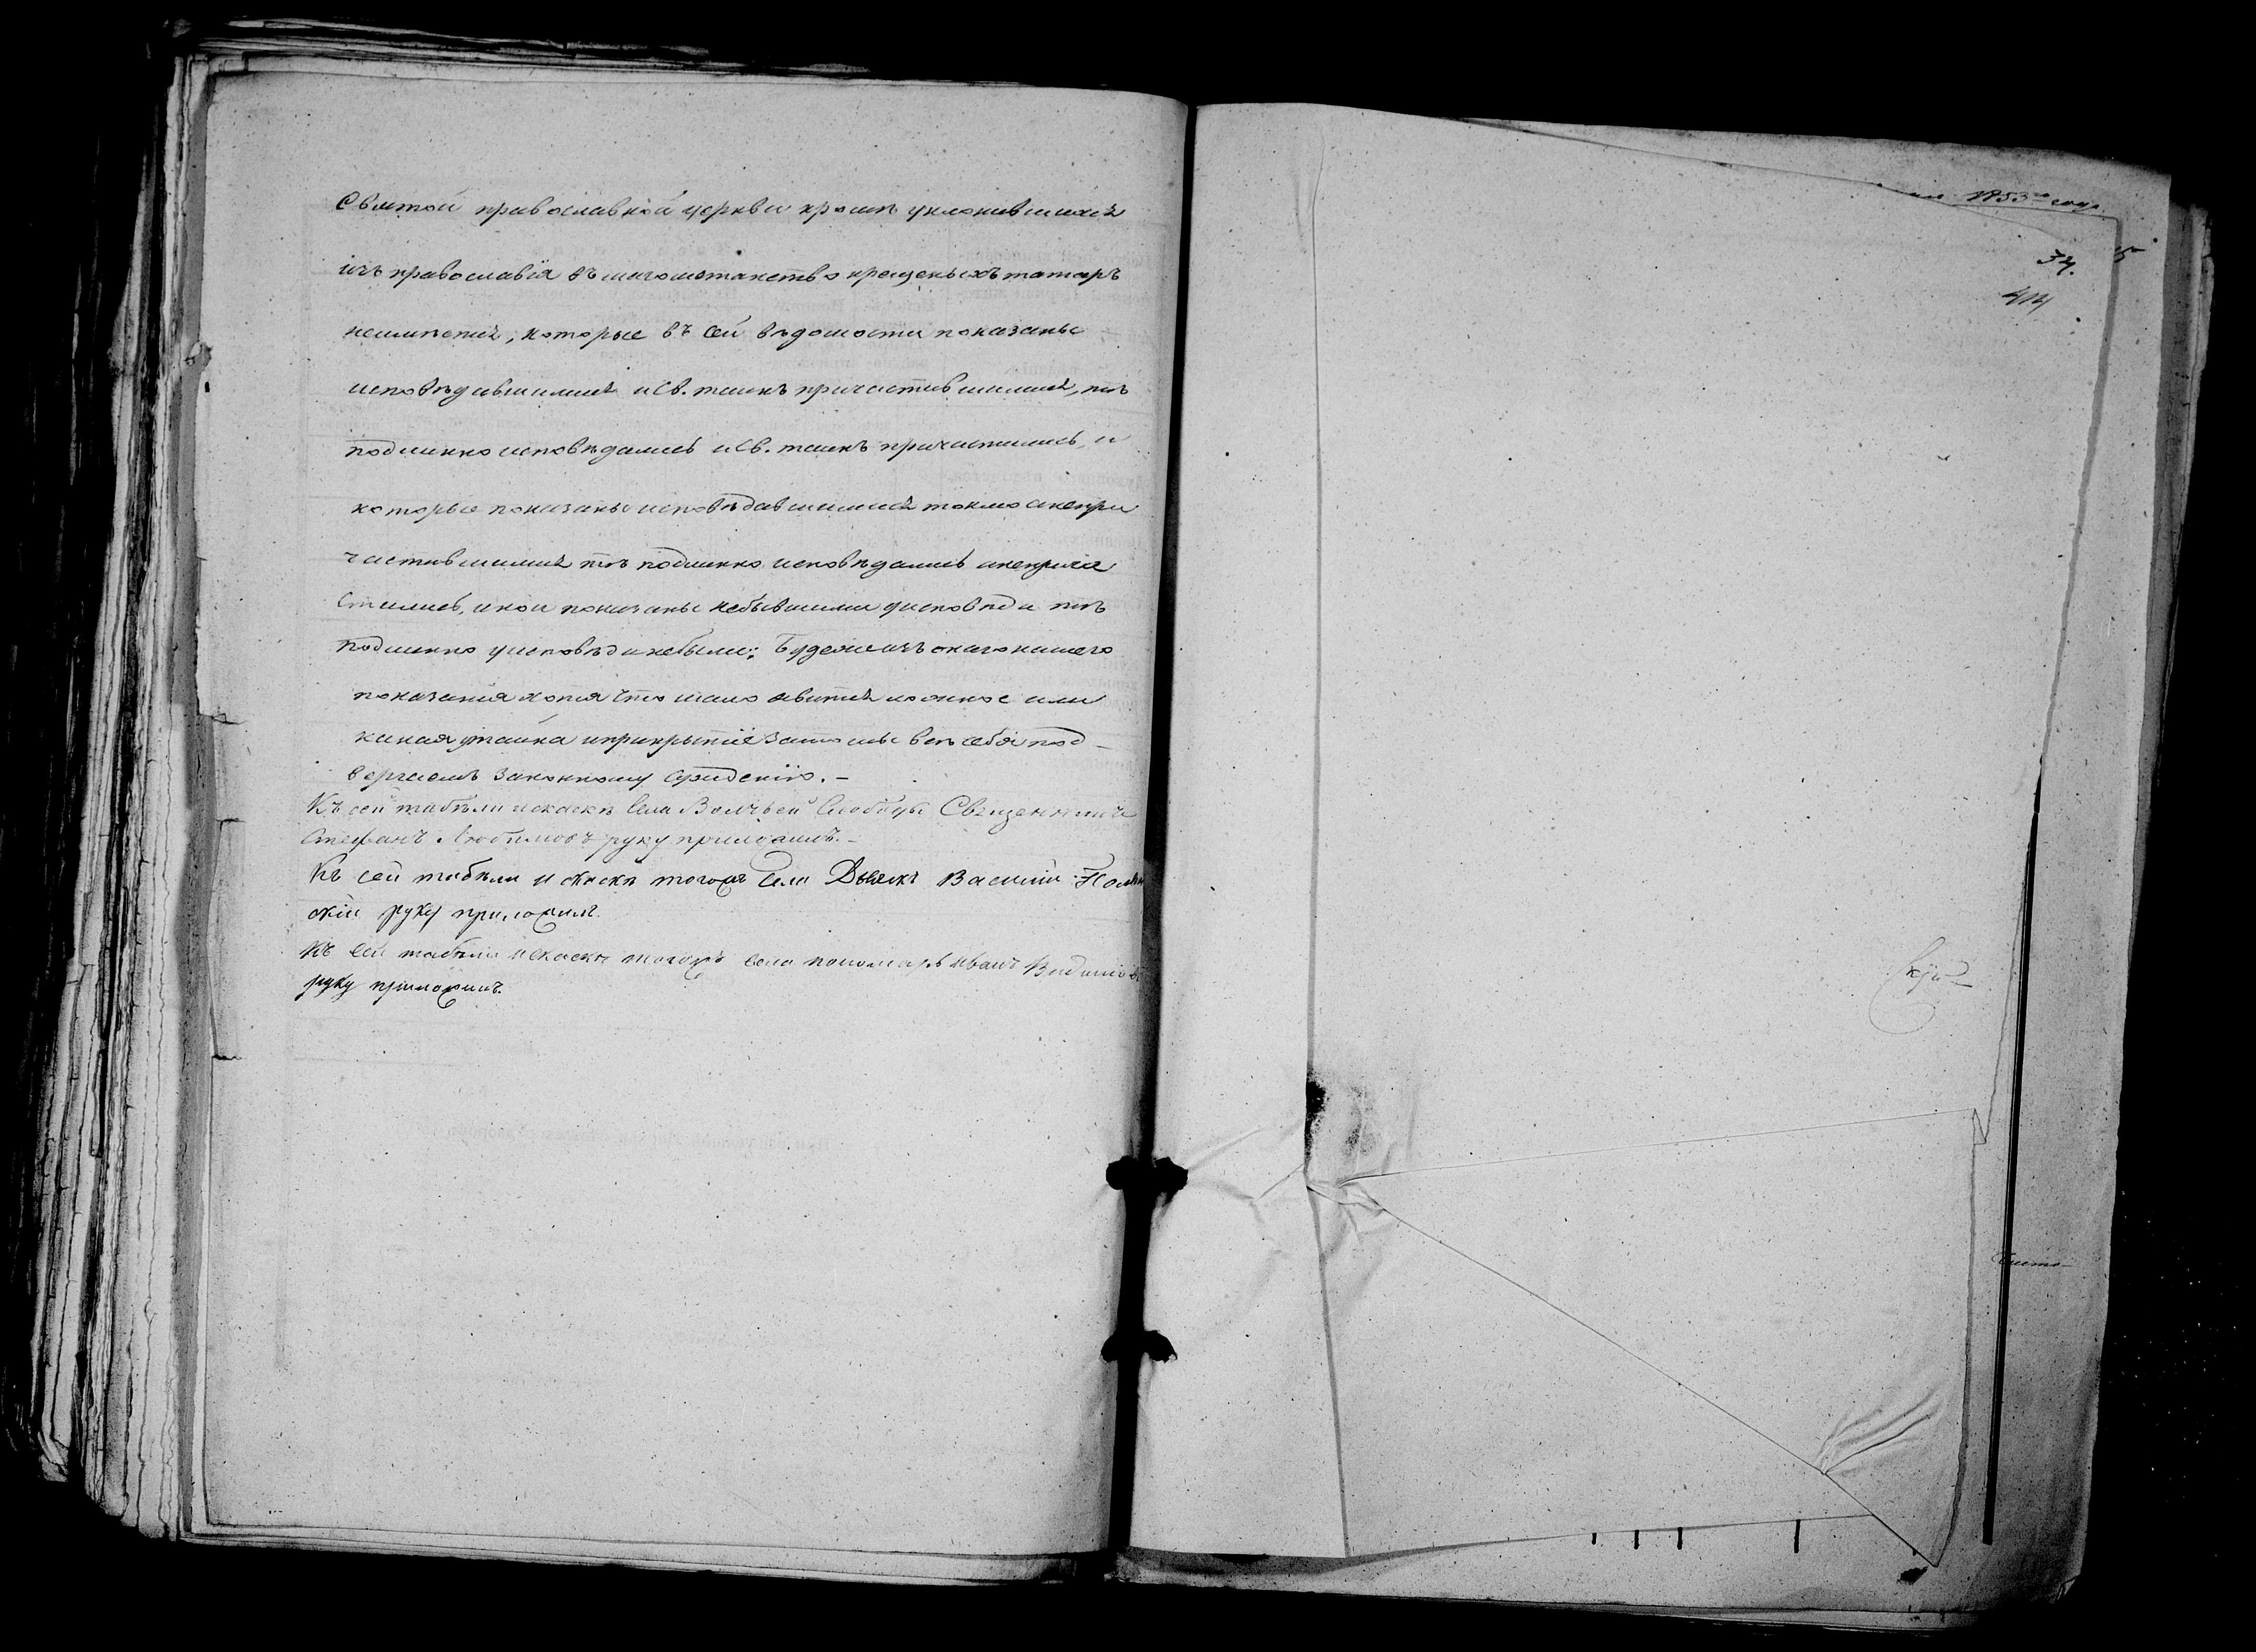 Святой православной церкви кромѣ уклонившихся
изъ православія въ магометанство крещеныхъ татаръ
неимѣется, которые въ сей вѣдомости показаны
исповѣдавшимися и Св. таинъ причастившимися, тѣ
подлинно исповѣдались и Св. таинъ причастились, и
которые показаны исповѣдавшимися токмо анепри
частившимися тѣ подлинно исповѣдались анеприча
стились, и кои показаны небывшими уисповѣди тѣ
подлинно уисповѣди небыли; Будеже изъ онаго нашего
показанія хотя что мало явится ложное или
какая утайка иприкрытіе зато мы всѣ себя под-
вергаемъ законному сужденію. -
Къ сей табѣли искаскѣ села Волчьей Слободы Священникъ
Стефанъ Любимовъ руку приложилъ. -
Къ сей табѣли и скаскѣ тогожъ села Дьячекъ Василій
скій руку приложилъ.
Къ сей табѣли искаскѣ тогожъ села пономарь Иванъ
руку приложилъ.
1853го года
34.
414
5